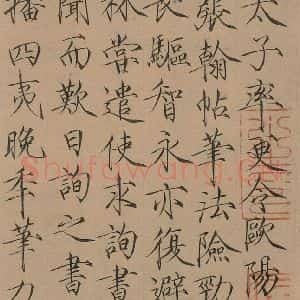 太子率更令歐陽
張翰帖筆法險勁
長驅智永亦復避
林嘗遣使求詢書
聞而歎曰詢之書
播四夷晚年筆力